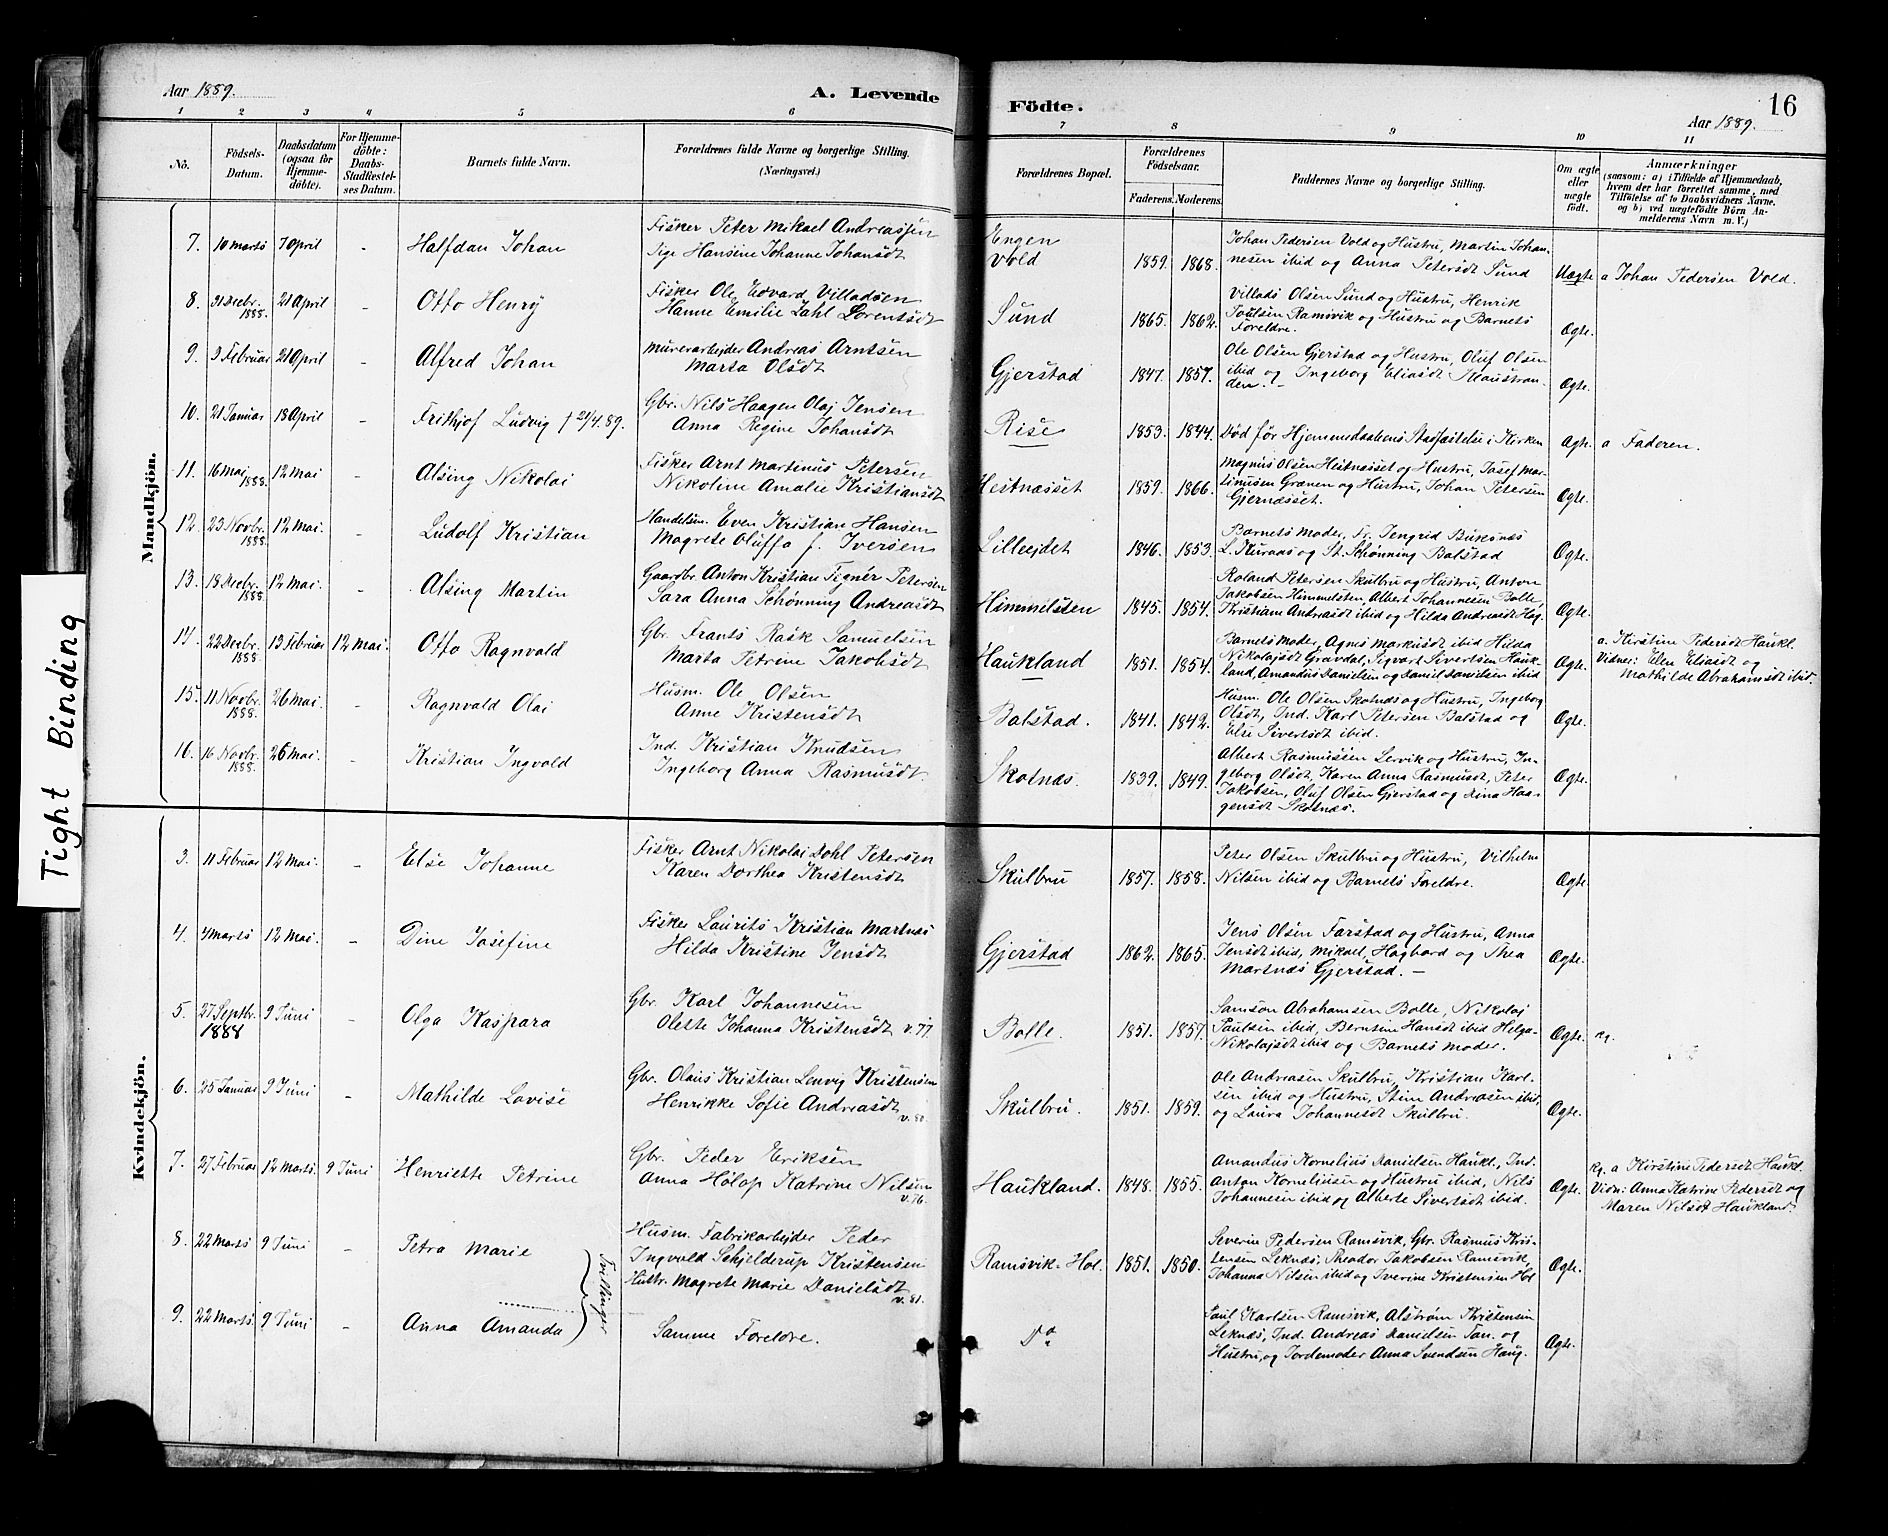 Tight Binding
Aar 1889.
A. Levende
Födte.
16
Aar 1889.
1 2 3 4 5 6 7 8 9 10 11
No.
Födsels-
Datum.
Daabsdatum
(ogsaa for
Hjemme-
döbte).
For Hjemme-
döbte:
Daabs-
Stadfæstel-
ses Datum.
Barnets fulde Navn.
Forældrenes fulde Navne og borgerlige Stilling.
(Næringsvei.)
Forældrenes Bopæl.
Forældrenes
Födselsaar.
Faderens. Moderens.
Faddernes Navne og borgerlige Stilling.
Om ægte
eller
uægte
født.
Anmærkninger
(saasom: a) i Tilfælde af Hjemmedaab,
hvem der har forrettet samme, med
Tilföielse af to Daabsvidners Navne.
og b) ved uægtefödte Börn An-
melderens Navn m. V.)
Mandkjön.
7. 10 marts 7 April - Halfdan Johan
Fisker Peter Mikael Andreassen
Pige Hansine Johanne Johansdt
Engen
Vold
1859. 1868.
Johan Pedersen Vold og Hustru, Martin Johan-
nesen ibid og Anna Petersdt Sund
Uægte a Johan Pedersen Vold.
8. 31 Decbr. 1888. 21 April - Otto Henry
Fisker Ole Edvard Villadsen
Hanne Emilie Zahl Lorentsdt
Sund 1865. 1862.
Villads Olsen Sund og Hustru, Henrik
Poulsen Ramsvik og Hustru og Barnets
Foreldre.
Ægte.
9. 3 Februar 21 April - Alfred Johan
Murerarbejder Andreas Arntsen
Marta Olsdt
Gjerstad 1847. 1857.
Ole Olsen Gjerstad og Hustru, Oluf Olsen
ibid og Ingeborg Eliasdt Maustran-
den. -
Ægte.
10. 21 Januar 18 April - Frithjof Ludvig † 21/4.89.
Gbr. Nils Haagen Olaj Jensen
Anna Regine Johansdt
Rise 1853. 1844.
Død før Hjemmedaabens Stadfæstelse i Kirken
Ægte. a Faderen.
11. 16 Mai 1888. 12 Mai - Alsing Nikolai
Fisker Arnt Martinus Petersen
Nikoline Amalie Kristiansdt
Hestnæsset 1859. 1866.
Magnus Olsen Hestnæsset og Hustru, Josef Mar-
tinusen Grænen og Hustru, Johan Petersen
Gjernæsset.
Ægte.
12. 23 Novbr. 1888. 12 Mai. - Ludolf Kristian
Handelsm. Even Kristian Hansen
Magrete Oluffa f. Iversen
Lilleejdet 1846. 1853.
Barnets Moder, Fr. Jengrid Buksnæs
L. Kuraas og St. Schønning Balstad
Ægte.
13. 18 Decbr. 1888. 12 Mai. - Alsing Martin
Gaardbr. Anton Kristian Tegnér Petersen
Sara Anna Schønning Andreasdt
Himmelsten 1845. 1854.
Roland Petersen Skulbru og Hustru, Anton
Jakobsen Himmelsten, Albert Johannesen Bolle,
Kristiane Andreasdt ibid og Hilda Andreasdt Hag.
Ægte.
14. 22 Decbr. 1888. 13 Februar 12 Mai. Otto Ragnvald
Gbr. Frants Rask Samuelsen
Marta Petrine Jakobsdt
Haukland 1851. 1854.
Barnets Moder, Agnes Markusdt ibid Hilda
Nikolajsdt Gravdal, Sigvart Sivertsen Hauk-
land, Amandus Danielsen og Daniel Danielsen ibid
Ægte.
a. Kirstine Pedersdt Haukl.
Vidner: Elen Eliasdt og
Mathilde Abrahamsdt ibid.
15. 11 Novbr. 1888. 26 Mai. - Ragnvald Olai
Husm. Ole Olsen
Anne Kristensdt
Balstad. 1841. 1842.
Husm. Ole Olsen Skotnæs og Hustru, Ingeborg
Olsdt, Ind. Karl Petersen Balstad og
Else Sivertsdt ibid.
Ægte.
16. 16 Novbr. 1888. 26 Mai. - Kristian Ingvald
Ind. Kristian Knudsen
Ingeborg Anna Rasmusdt
Skotnæs. 1839. 1849.
Albert Rasmussen Lervik og Hustru, In-
geborg Olsdt, Karen Anna Rasmusdt, Peter
Jakobsen, Oluf Olsen Gjerstad og Dina Haa-
gensdt Skotnæs.
Ægte.
Kvindekjön.
3. 11 Februar 12 Mai. - Else Johanne
Fisker Arnt Nikolai Dohl Petersen
Karen Dorthea Kristensdt
Skulbru 1857. 1858.
Peter Olsen Skulbru og Hustru, Vilhelm
Nilsen ibid og Barnets Foreldre.
Ægte.
4. 4 Marts 12 Mai. - Dine Josefine
Fisker Laurits Kristian Martnæs
Hilda Kristine Jensdt
Gjerstad 1862. 1865.
Jens Olsen Farstad og Hustru, Anna
Jensdt ibid, Mikael, Hagbard og Thea
Martnæs Gjerstad. -
Ægte.
5. 27 Septbr. 1888 9 Juni - Olga Kaspara
Gbr. Karl Johannesen
Olette Johanna Kristensdt v. 77.
Bolle. 1851. 1857.
Samson Abrahamsen Bolle, Nikolaj
Paulsen ibid, Berntine Hansdt ibid Helga
Nikolajsdt ibid og Barnets Moder.
Ægte. kg.
6. 25 Januar 9 Juni - Mathilde Lovise
Gbr. Olaus Kristian Lenvig Kristensen
Henrikke Sofie Andreasdt v. 80.
Skulbru. 1851. 1859.
Ole Andreasen Skulbru, Kristian Karl-
sen ibid og Hustru, Stine Andreasen ibid,
og Laura Johannesdt Skulbru.
Ægte.
7. 27 Februar 12 Marts. 9 Juni Henriette Petrine
Gbr. Peder Eriksen
Anna Holap Katrine Nilsen v. 76.
Haukland. 1848. 1855.
Amandus Kornelius Danielsen Haukl., Ind.
Anton Korneliusen og Hustru ibid, Nils
Johannesen ibid og Alberte Sivertsdt ibid.
Ægte.
kg. a Kirstine Pedersdt Haukl.
Vidn: Anna Katrine Pedersdt og
Maren Nilsdt Haukland
8. 22 Marts 9 Juni - Petra Marie
Tvillinger
Husm. Fabrikarbejder Peder
Ingvold Schjelderup Kristensen
Hustr. Magrete Marie Danielsdt v. 81.
Ramsvik-Hol. 1851. 1850.
Severin Pedersen Ramsvik, Gbr. Rasmus Kris-
tensen Leknæs, Theodor Jakobsen Ramsvik,
Johanna Nilsen ibid og Iverine Kristensen Hol
Ægte.
9. 22 Marts. 9 Juni - Anna Amanda
Samme Foreldre.
Do
Paul Karlsen Ramsvik, Alstrøm Kristensen
Leknæs, Ind. Andreas Danielsen Tan. og
Hustru, og Jordemoder Anna Svendsen Haug.
Ægte.